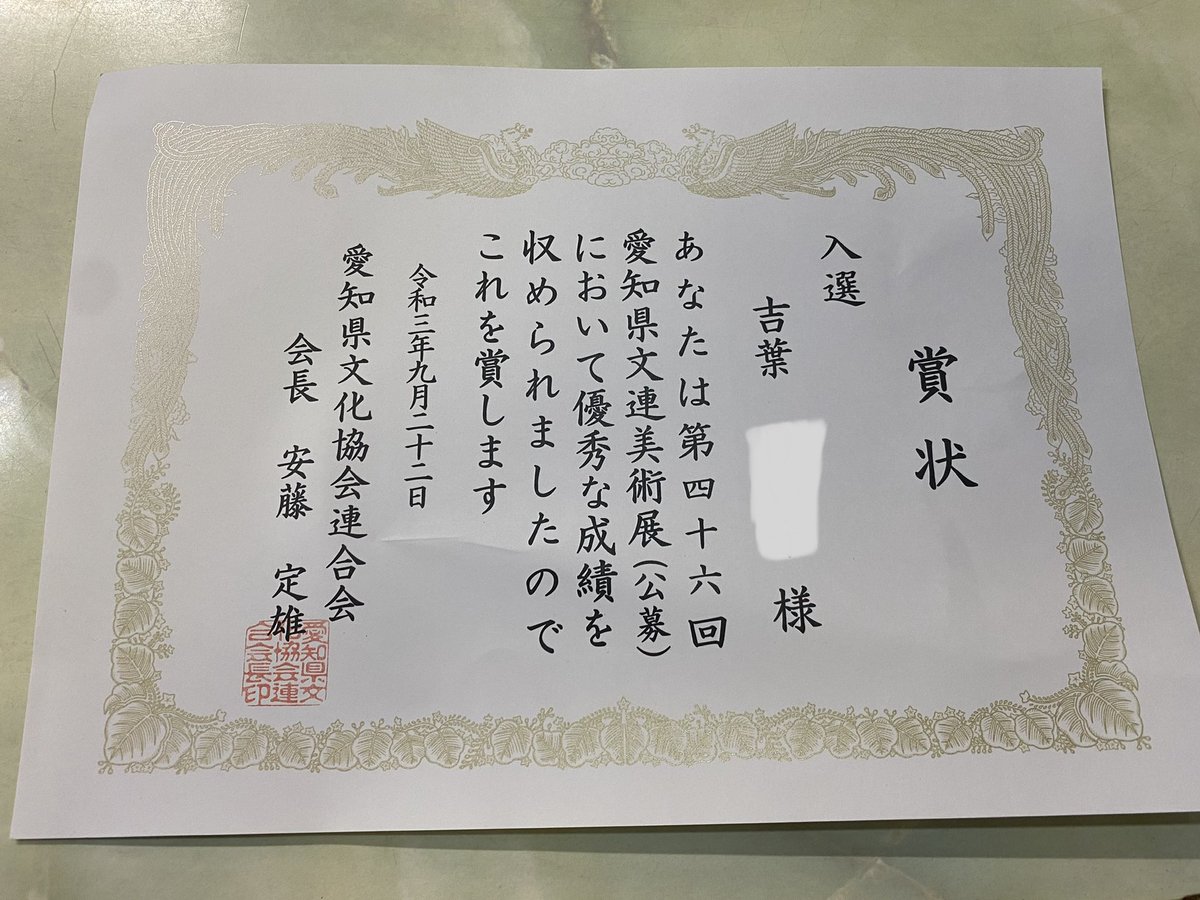 賞状
入選
吉葉 様
あなたは第四十六回
愛知県文連美術展(公募)
において優秀な成績を
収められましたので
これを賞します
令和三年九月二十二日
愛知県文化協会連合会
会長 安藤 定雄
愛知県文
化協会連
合会長印